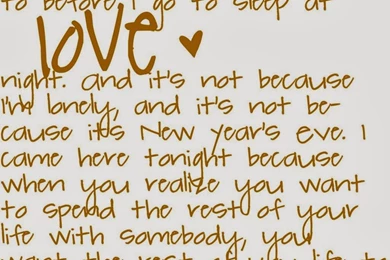 to before I go to sleep at
love
night. and it's not because
I'm lonely, and it's not be-
cause it's New Year's Eve. I
came here tonight because
when you realize you want
to spend the rest of your
life with somebody, you
want the rest of your life to